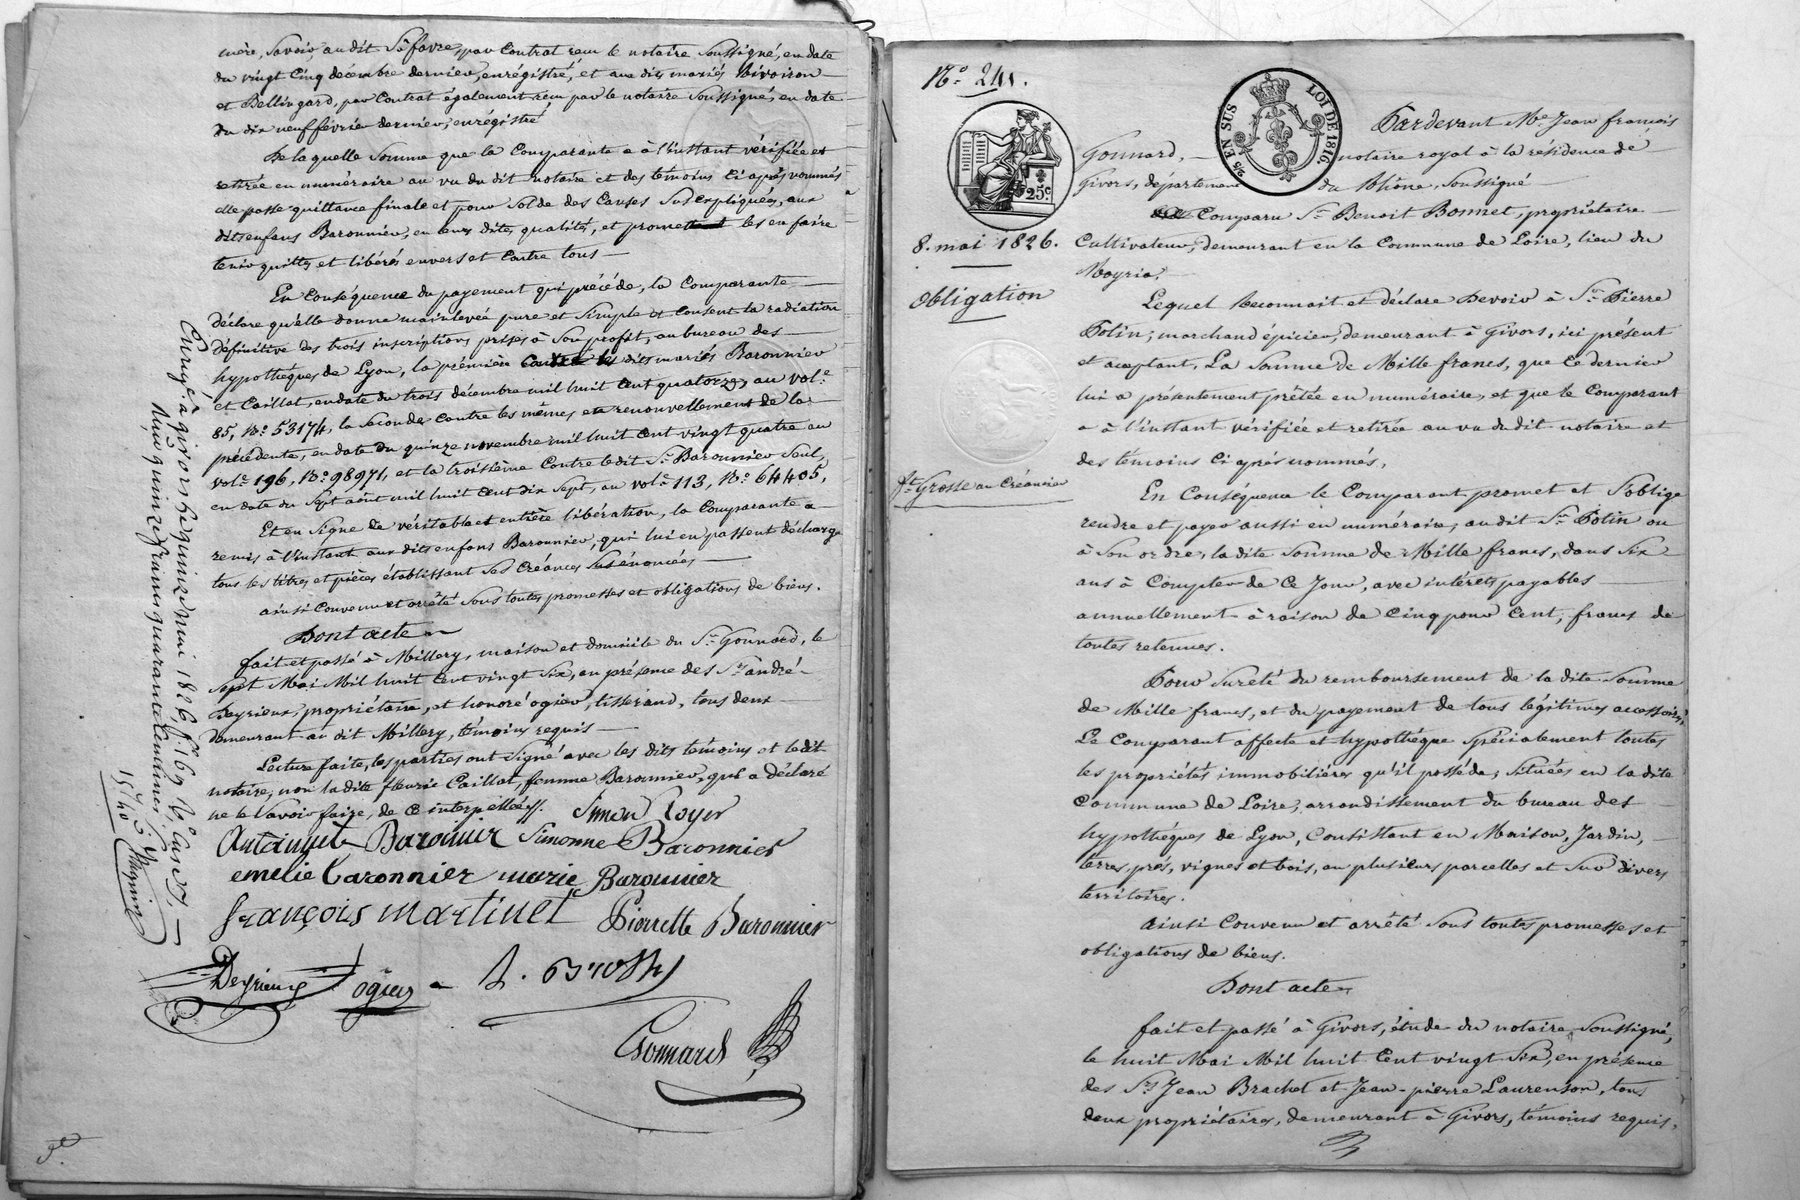 mère, Savoir, au dit Sr favre, par Contrat reçu le notaire Soussigné, en date
du vingt Cinq décembre dernier, enrégistré, et aux dits mariés Vivoiron
et Bellingard, par Contrat également reçu par le notaire Soussigné, en date
du dix neuf février dernier, enrégistré
De laquelle Somme que la Comparante a à l'instant vérifiée et
retirée en numéraire au vu du dit notaire et des témoins Ci après nommés
elle passe quittance finale et pour Solde des Causes Sus expliquées, aux
dits enfans Baronnier, en leurs dites qualités, et promet les en faire
tenir quittes et libérés envers et Contre tous
En Conséquence du payement qui précéde, la Comparante
déclare qu'elle donne mainlevée pure et Simple et Consent la radiation
définitive des trois inscriptions prises à Son profit, au bureau des
hypothèques de Lyon, la prémière Contre les dits mariés Baronnier
et Caillat, en date du trois décembre mil huit Cent quatorze, au vol.e
85, No. 53174, la Seconde Contre les mêmes en renouvellement de la
précédente, en date du quinze novembre mil huit Cent vingt quatre au
vol. 196, No. 98971, et la troisième Contre ledit Sr Baronnier Seul,
en date du Sept août mil huit Cent dix Sept, au vol. 113, No. 64405,
Et en Signe de véritable et entière libération, la Comparante a
remis à l'instant aux dits enfans Baronnier, qui lui en passent décharge
tous les titres et pièces établissant Ses Créances Susénoncées
ainsi Convenu et arrêté Sous toutes promesses et obligations de biens.
Dont acte
fait et passé à Millery, maison et domicile du Sr Gounard, le
Sept Mai Mil huit Cent vingt Six, en présence des Srs andré
Deyrieux, propriétaire, et honoré ogier, tisserand, tous deux
demeurant au dit Millery, témoins requis
Lecture faite, les parties ont Signé avec les dits témoins et ledit
notaire, non la dite fleurie Caillat, femme Baronnier, qui a déclaré
ne le Savoir faire, de Ce interpellée.
Simon Royer
Antoinette Baronnier Simonne Baronnier
emelie baronnier marie Baronnier
françois martinet Pierrette Baronnier
Deyrieux ogier
Gonnard
Enregé. à givors le quinze mai 1826, fo. 169
Reçu quinze francs quarante centimes
15.40
No. 241.
25c.
EN SUS LOI DE 1816.
8. mai 1826.
Obligation
ft. Grosse au Créancier
Pardevant Me. Jean françois
Gonnard, notaire royal à la résidence de
Givors, département du Rhône, Soussigné
Comparu Sr Benoit Bonnet, propriétaire
Cultivateur, demeurant en la Commune de Loire, lieu du
Noyria.
Lequel Reconnait et déclare Devoir à Sr Pierre
Potin, marchand épicier, demeurant à Givors, ici présent
et acceptant, La Somme de Mille francs, que Ce dernier
lui a présentement prêtée en numéraire, et que le Comparant
a à l'instant vérifiée et retirée au vu du dit notaire et
des témoins Ci après nommés,
En Conséquence le Comparant promet et S'oblige
rendre et payer aussi en numéraire, au dit Sr Potin ou
à Son ordre, la dite Somme de Mille francs, dans Six
ans à Compter de Ce Jour, avec intérêts payables
annuellement à raison de Cinq pour Cent, francs de
toutes retenues.
Pour Sureté du remboursement de la dite Somme
de Mille francs, et du payement de tous légitimes accessoires
Le Comparant affecte et hypothéque Spécialement toutes
les propriétés immobilières qu'il posséde, Situées en la dite
Commune de Loire, arrondissement du bureau des
hypothéques de Lyon, Consistant en Maison, Jardin,
terres, prés, vignes et bois, en plusieurs parcelles et Sur divers
territoires.
ainsi Convenu et arrêté Sous toutes promesses et
obligations de biens.
Dont acte
fait et passé à Givors, étude du notaire Soussigné,
le huit Mai Mil huit Cent vingt Six, en présence
des Srs Jean Brachet et Jean-pierre Laurenson, tous
deux propriétaires, demeurant à Givors, témoins requis,